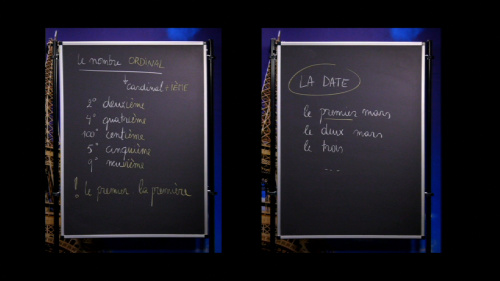 le nombre ORDINAL
cardinal + IÈME
2° deuxième
4° quatrième
100° centième
5° cinquième
9° neuvième
! le premier la première
LA DATE
le premier mars
le deux mars
le trois
....